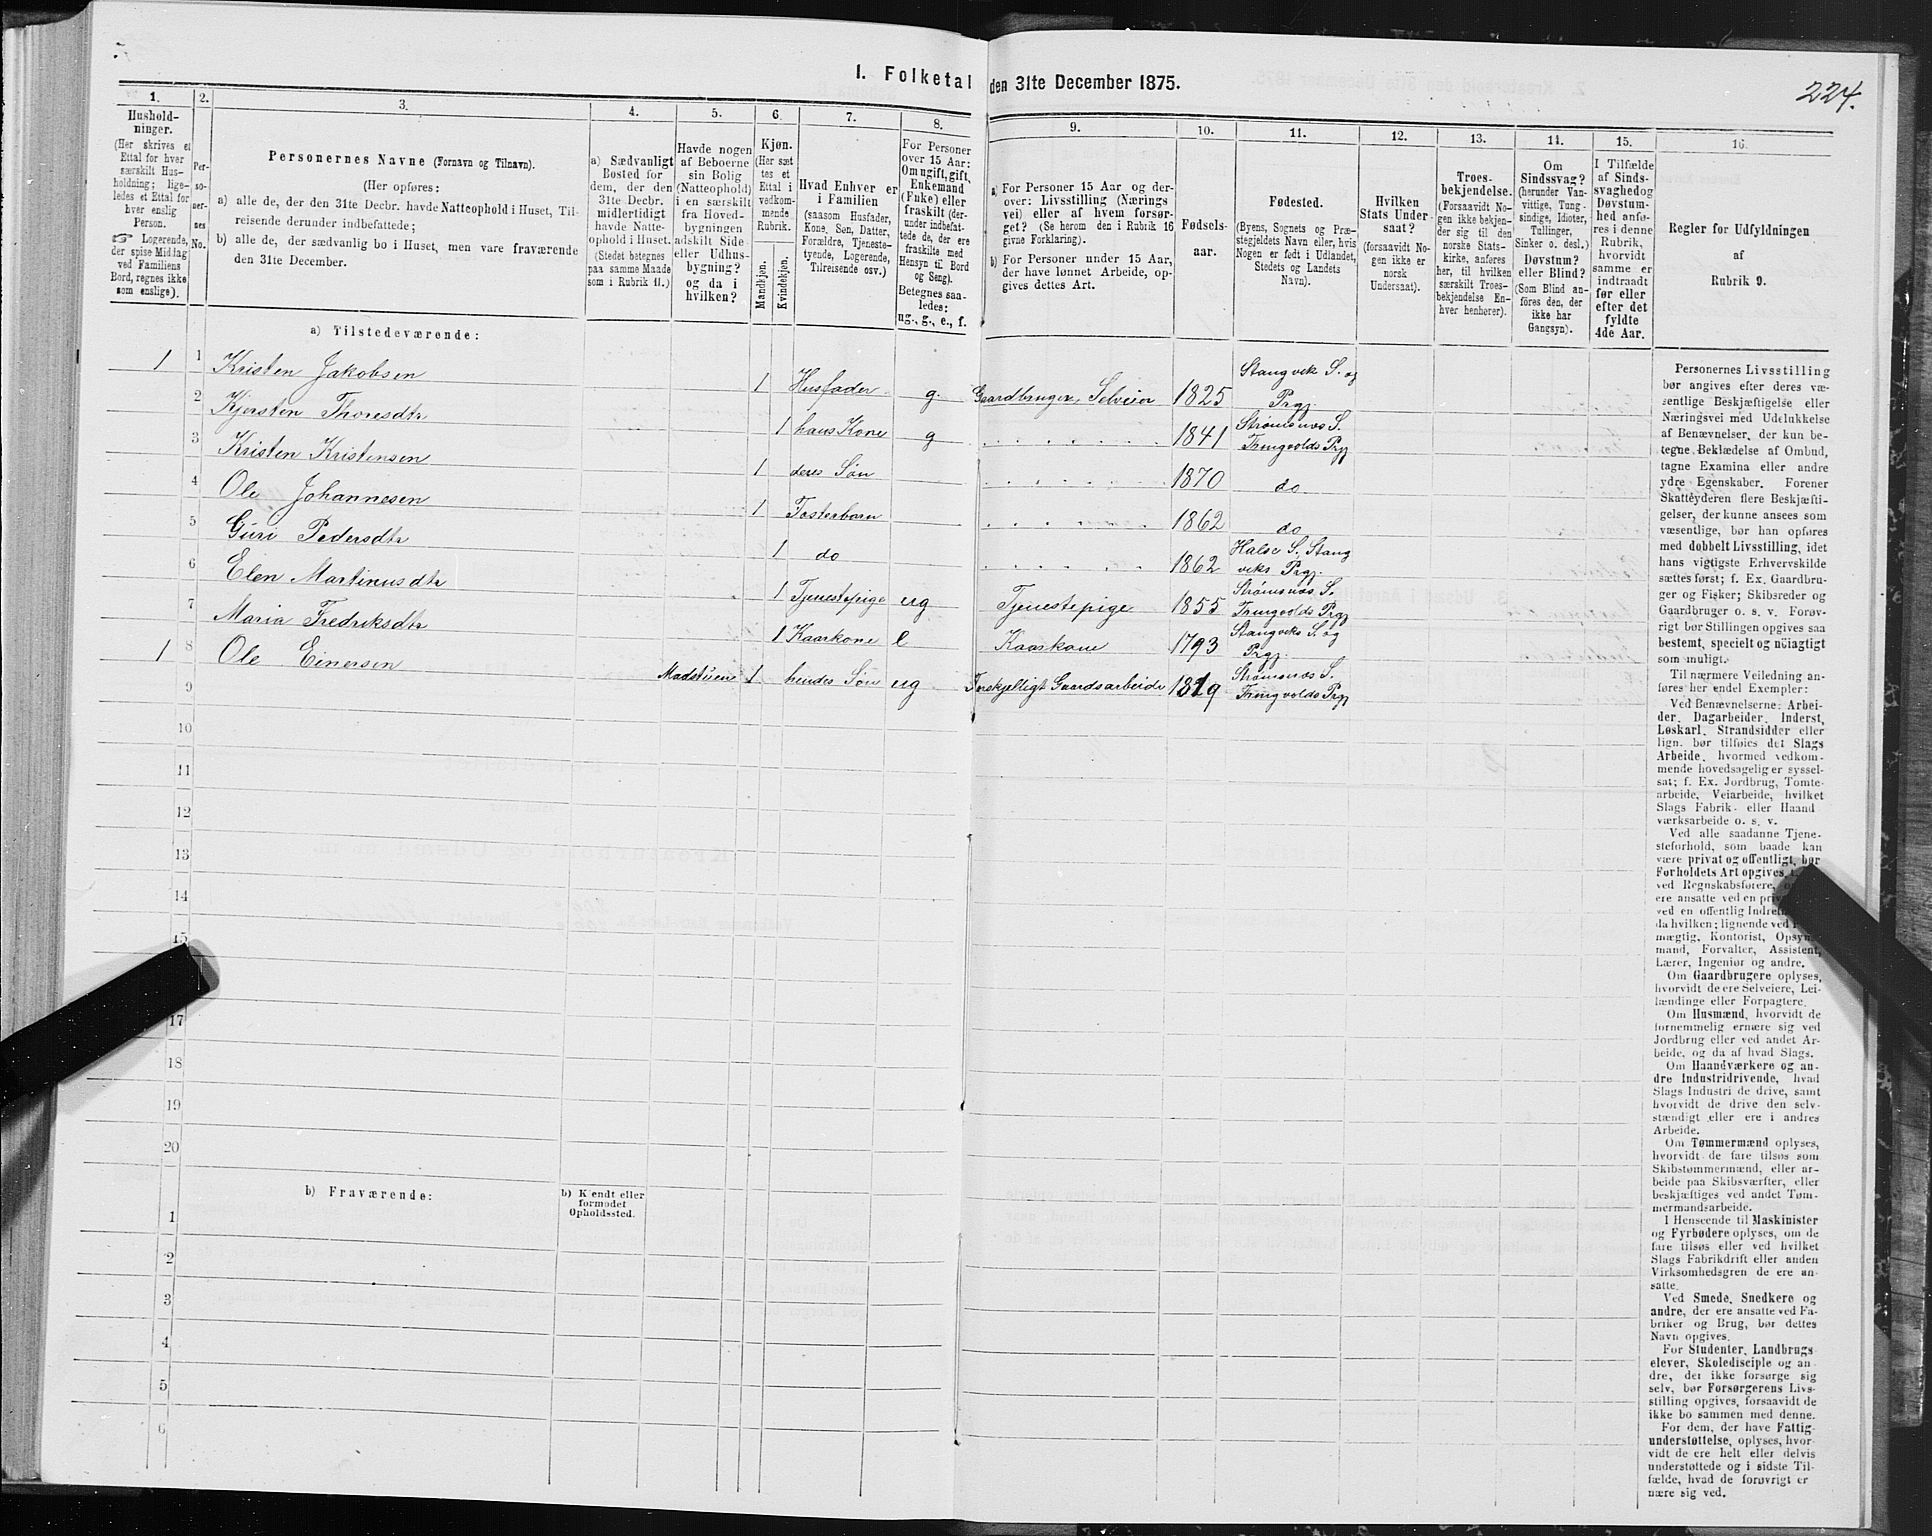 I. Folketal den 31te December 1875.
224.
1.
Husholdninger.
(Her skrives et
Ettal for hver
særskilt Husholdning; ligeledes
et Ettal for
hver enslig
Person.
☞ Logerende,
der spise Middag
ved Familiens
Bord, regnes ikke
som enslige).
2.
Personernes
No.
3.
Personernes Navne (Fornavn og Tilnavn).
(Her opføres:
a) alle de, der den 31te Decbr. havde Natteophold i Huset, Tilreisende
derunder indbefattede;
b) alle de, der sædvanlig bo i Huset, men vare fraværende
den 31te December.
4.
a) Sædvanligt
Bosted for
dem, der den
31te Decbr.
midlertidigt
havde Natteophold
i Huset.
(Stedet betegnes
paa samme Maade
som i Rubrik 11.)
5.
Havde nogen
af Beboerne
sin Bolig
(Natteophold)
i en særskilt
fra Hovedbygningen
adskilt Side
eller Udhusbygning?
og da i
hvilken?
6.
Kjøn.
(Her sættes
et
Ettal i
vedkommende
Rubrik.
Mandkjøn.
Kvindekjøn.
7.
Hvad Enhver er
i Familien
(saasom Husfader,
Kone, Søn, Datter,
Forældre, Tjenestetyende,
Logerende,
Tilreisende osv.)
8.
For Personer
over 15 Aar:
Om ugift, gift,
Enkemand
(Enke) eller
fraskilt (derunder
indbefattede
de, der ere
fraskilte med
Hensyn til Bord
og Seng).
Betegnes saaledes:
ug., g., e., f.
9.
a) For Personer 15 Aar og derover:
Livsstilling (Næringsvei)
eller af hvem forsørget?
(Se herom den i Rubrik 16
givne Forklaring).
b) For Personer under 15 Aar,
der have lønnet Arbeide, opgives
dettes Art.
10.
Fødselsaar.
11.
Fødested.
(Byens, Sognets og Præstegjeldets
Navn eller, hvis
Nogen er født i Udlandet,
Stedets og Landets
Navn).
12.
Hvilken
Stats Undersaat?
(forsaavidt Nogen
ikke er
norsk
Undersaat).
13.
Troesbekjendelse.
(Forsaavidt Nogen
ikke bekjender
sig til den
norske Statskirke,
anføres
her, til hvilken
særskilt Troesbekjendelse
Enhver
henhører).
14.
Om
Sindssvag?
(herunder Vanvittige,
Tungsindige,
Idioter,
Tullinger,
Sinker o. desl.)
Døvstum?
eller Blind?
(Som Blind anføres
den, der
ikke har
Gangsyn).
15.
I Tilfælde
af Sindssvaghed
og
Døvstumhed
anføres
i denne
Rubrik,
hvorvidt
samme er
indtraadt
før eller
efter det
fyldte
4de Aar.
16.
Regler for Udfyldningen
af
Rubrik 9.
a) Tilstedeværende:
1 1 Kristen Jakobsen 1 Husfader g. Gaardbruger, Selveier 1825 Stangvik S. og Prgj.
2 Kjersten Thoresdtr 1 hans Kone g 1841 Strømsnæs S. Tingvolds Prgj
3 Kristen Kristensen 1 deres Søn 1870 do
4 Ole Johannesen 1 Fosterbarn 1862 do
5 Guri Pedersdtr 1 do 1862 Halse S. Stangviks Prgj.
6 Elen Martinusdtr 1 Tjenestepige ug Tjenestepige 1855 Strømsnæs S. Tingvolds Prgj
7 Maria Fredriksdtr 1 Kaarkone e Kaarkone 1793 Stangviks S. og Prgj.
1 8 Ole Einersen Madstuene 1 hendes Søn ug Forskjelligt Gaardsarbeide 1819 Strømsnæs S. Tingvolds Prgj
9
10
11
12
13
14
15
17
18
19
20
b) Fraværende:
b) Kjendt eller
formodet
Opholdssted.
1
2
3
4
5
6
Personernes Livsstilling
bør angives efter deres væsentlige
Beskjæftigelse eller
Næringsvei med Udelukkelse
af Benævnelser, der kun betegne
Beklædelse af Ombud,
tagne Examina eller andre
ydre Egenskaber. Forener
Skatteyderen flere Beskjæftigelser,
der kunne ansees som
væsentlige, bør han opføres
med dobbelt Livsstilling, idet
hans vigtigste Erhvervskilde
sættes først; f. Ex. Gaardbruger
og Fisker; Skibsreder og
Gaardbruger o. s. v. Forøvrigt
bør Stillingen opgives saa
bestemt, specielt og nøiagtigt
som muligt.
Til nærmere Veiledning anføres
her endel Exempler:
Ved Benævnelserne: Arbeider,
Dagarbeider, Inderst,
Løskarl, Strandsidder eller
lign. bør tilføies det Slags
Arbeide, hvormed vedkommende
hovedsagelig er sysselsat;
f. Ex. Jordbrug, Tomtearbeide,
Veiarbeide, hvilket
Slags Fabrik- eller Haandværksarbeide
o. s. v.
Ved alle saadanne Tjenesteforhold,
som baade kan
være privat og offentligt, bør
Forholdets Art opgives,
ved Regnskabsførere,
ere ansatte ved en
ved en offentlig
da hvilken; lignende ved
mægtig, Kontorist,
mand, Forvalter, Assistent,
Lærer, Ingeniør og andre.
Om Gaardbrugere oplyses,
hvorvidt de ere Selveiere, Leilændinge
eller Forpagtere.
Om Husmænd, hvorvidt de
fornemmelig ernære sig ved
Jordbrug eller ved andet Arbeide,
og da af hvad Slags.
Om Haandværkere og andre
Industridrivende, hvad
Slags Industri de drive, samt
hvorvidt de drive den selvstændigt
eller ere i andres
Arbeide.
Om Tømmermænd oplyses,
hvorvidt de fare tilsøs som
Skibstømmermænd, eller arbeide
paa Skibsværfter, eller
beskjæftiges ved andet Tømmermandsarbeide.
I Henseende til Maskinister
og Fyrbødere oplyses, om de
fare tilsøs eller ved hvilket
Slags Fabrikdrift eller anden
Virksomhedsgren de ere ansatte.
Ved Smede, Snedkere og
andre, der ere ansatte ved Fabriker
og Brug, bør dettes
Navn opgives.
For Studenter, Landbrugselever,
Skoledisciple og andre,
der ikke forsørge sig
selv, bør Forsørgerens Livsstilling
opgives, forsaavidt de
ikke bo sammen med denne.
For dem, der have Fattigunderstøttelse,
oplyses, hvorvidt
de ere helt eller delvis
understøttede og i sidste Tilfælde,
hvad de forøvrigt er
nære sig ved.